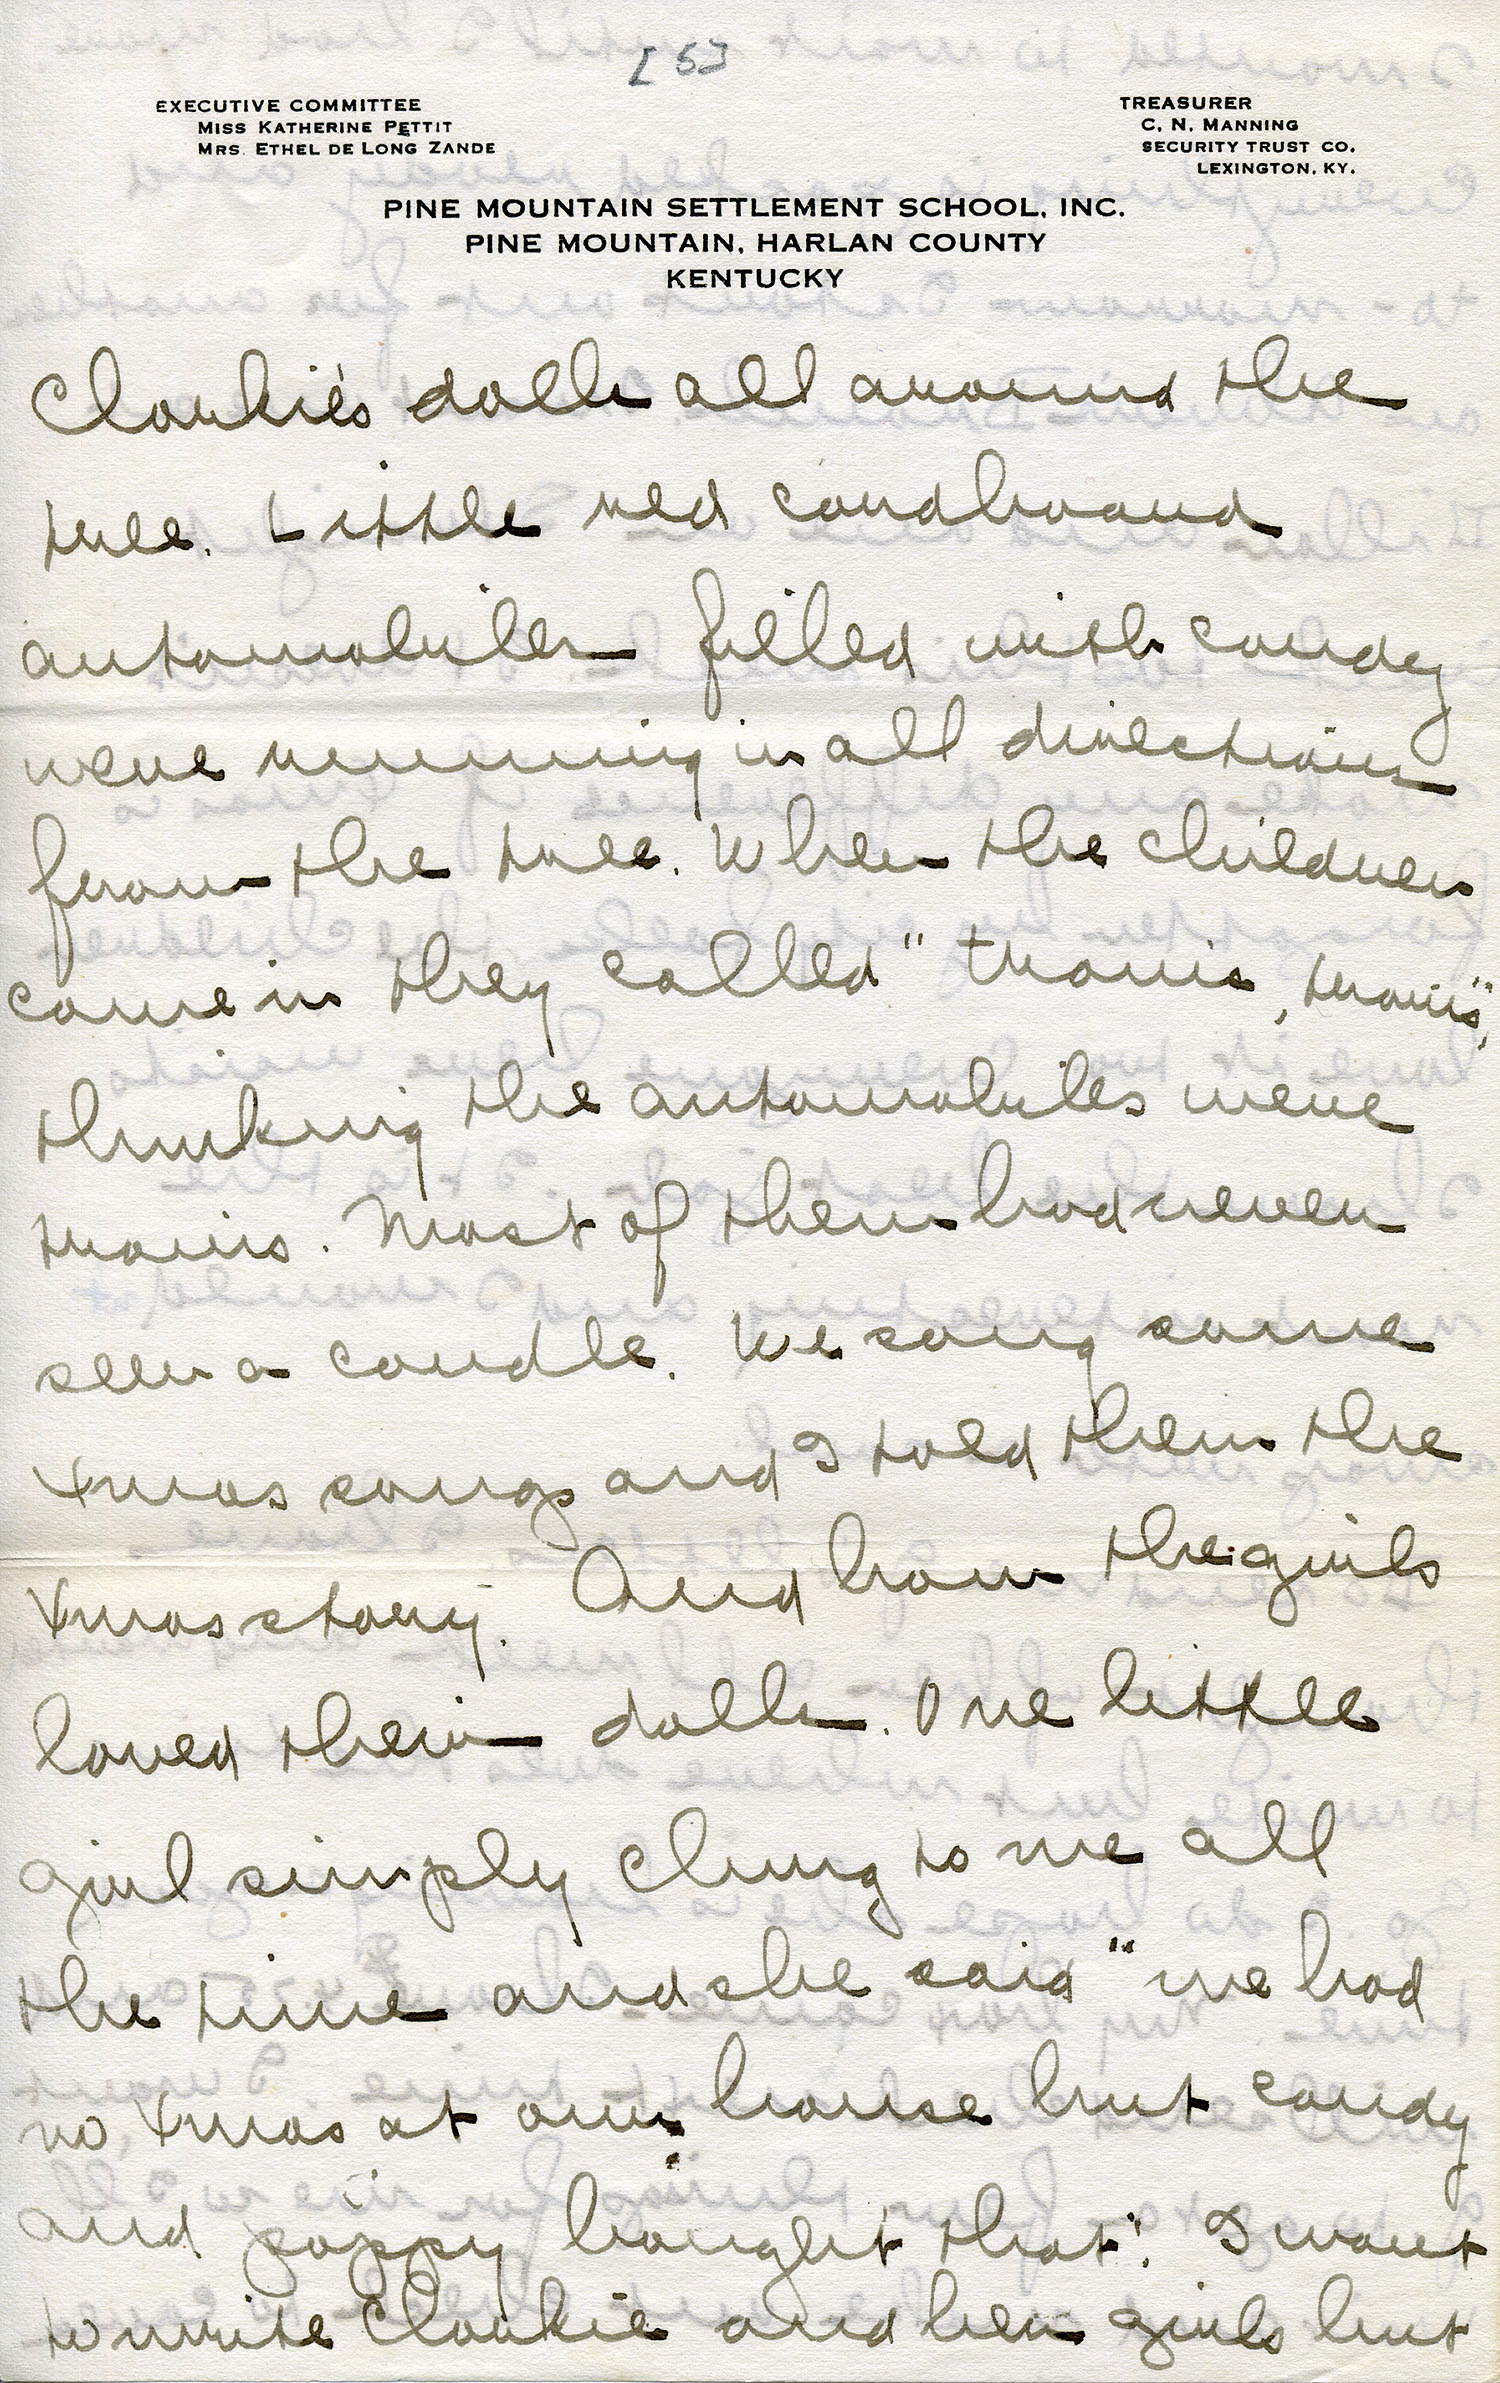 [5]
EXECUTIVE COMMITTEE
MISS KATHERINE PETTIT
MRS. ETHEL DE LONG ZANDE
TREASURER
C. N. MANNING
SECURITY TRUST CO.
LEXINGTON, KY.
PINE MOUNTAIN SETTLEMENT SCHOOL, INC.
PINE MOUNTAIN, HARLAN COUNTY
KENTUCKY
Clarkie's dolls all around the
tree. Little red cardboard
automobiles filled with candy
were running in all directions
from the tree. When the children
came in they called "trains, trains",
thinking the automobiles were
trains. Most of them had never
seen a candle. We sang some
Xmas songs and I told them the
Xmas story. And how the girls
loved their dolls. One little
girl simply clung to me all
the time and she said "we had
no Xmas at our house but candy
and pappy bought that". I want
to write Clarkie and her girls but